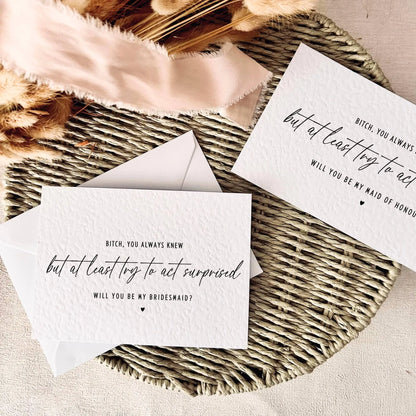 BITCH, YOU ALWAYS KNEW
but at least try to act surprised
WILL YOU BE MY BRIDESMAID?
BITCH, YOU ALWAYS
but at least try to act
WILL YOU BE MY MAID OF HONOU